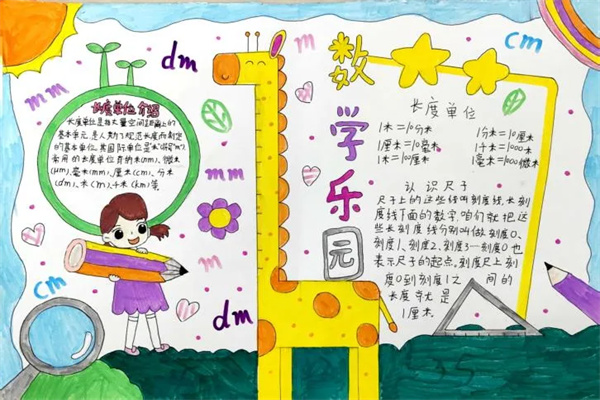 数学乐园
dm
mm
cm
m
长度单位介绍
长度单位是指丈量空间距离上的
基本单元,是人类为了规范长度而制定
的基本单位。其国际单位是"米"(符号"m"),
常用的长度单位有纳米(nm)、微米
(μm)、毫米(mm)、厘米(cm)、分米
(dm)、米(m)、千米(km)等
mm
m
mm
m
cm
dm
m
长度单位
1米=10分米
1分米=10厘米
1厘米=10毫米
1千米=1000米
1米=100厘米
1毫米=1000微米
认识尺子
尺子上的这些线叫刻度线,长刻
度线下面的数字,咱们就把这
些长刻度线分别叫做刻度0、
刻度1、刻度2、刻度3…刻度0也
表示尺子的起点。刻度尺上刻
度0到刻度1之间的
长度就是
1厘米.